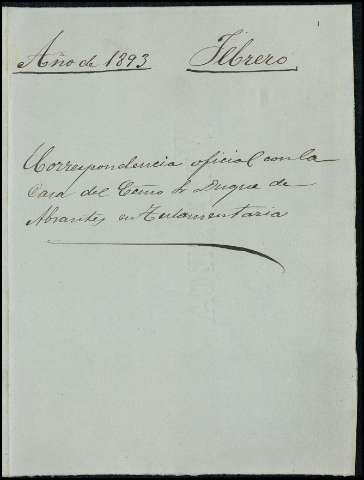 1
Año de 1893 Febrero
Correspondencia oficial con la
Casa del Exmo Sr Duque de
Abrantes en Testamentaria